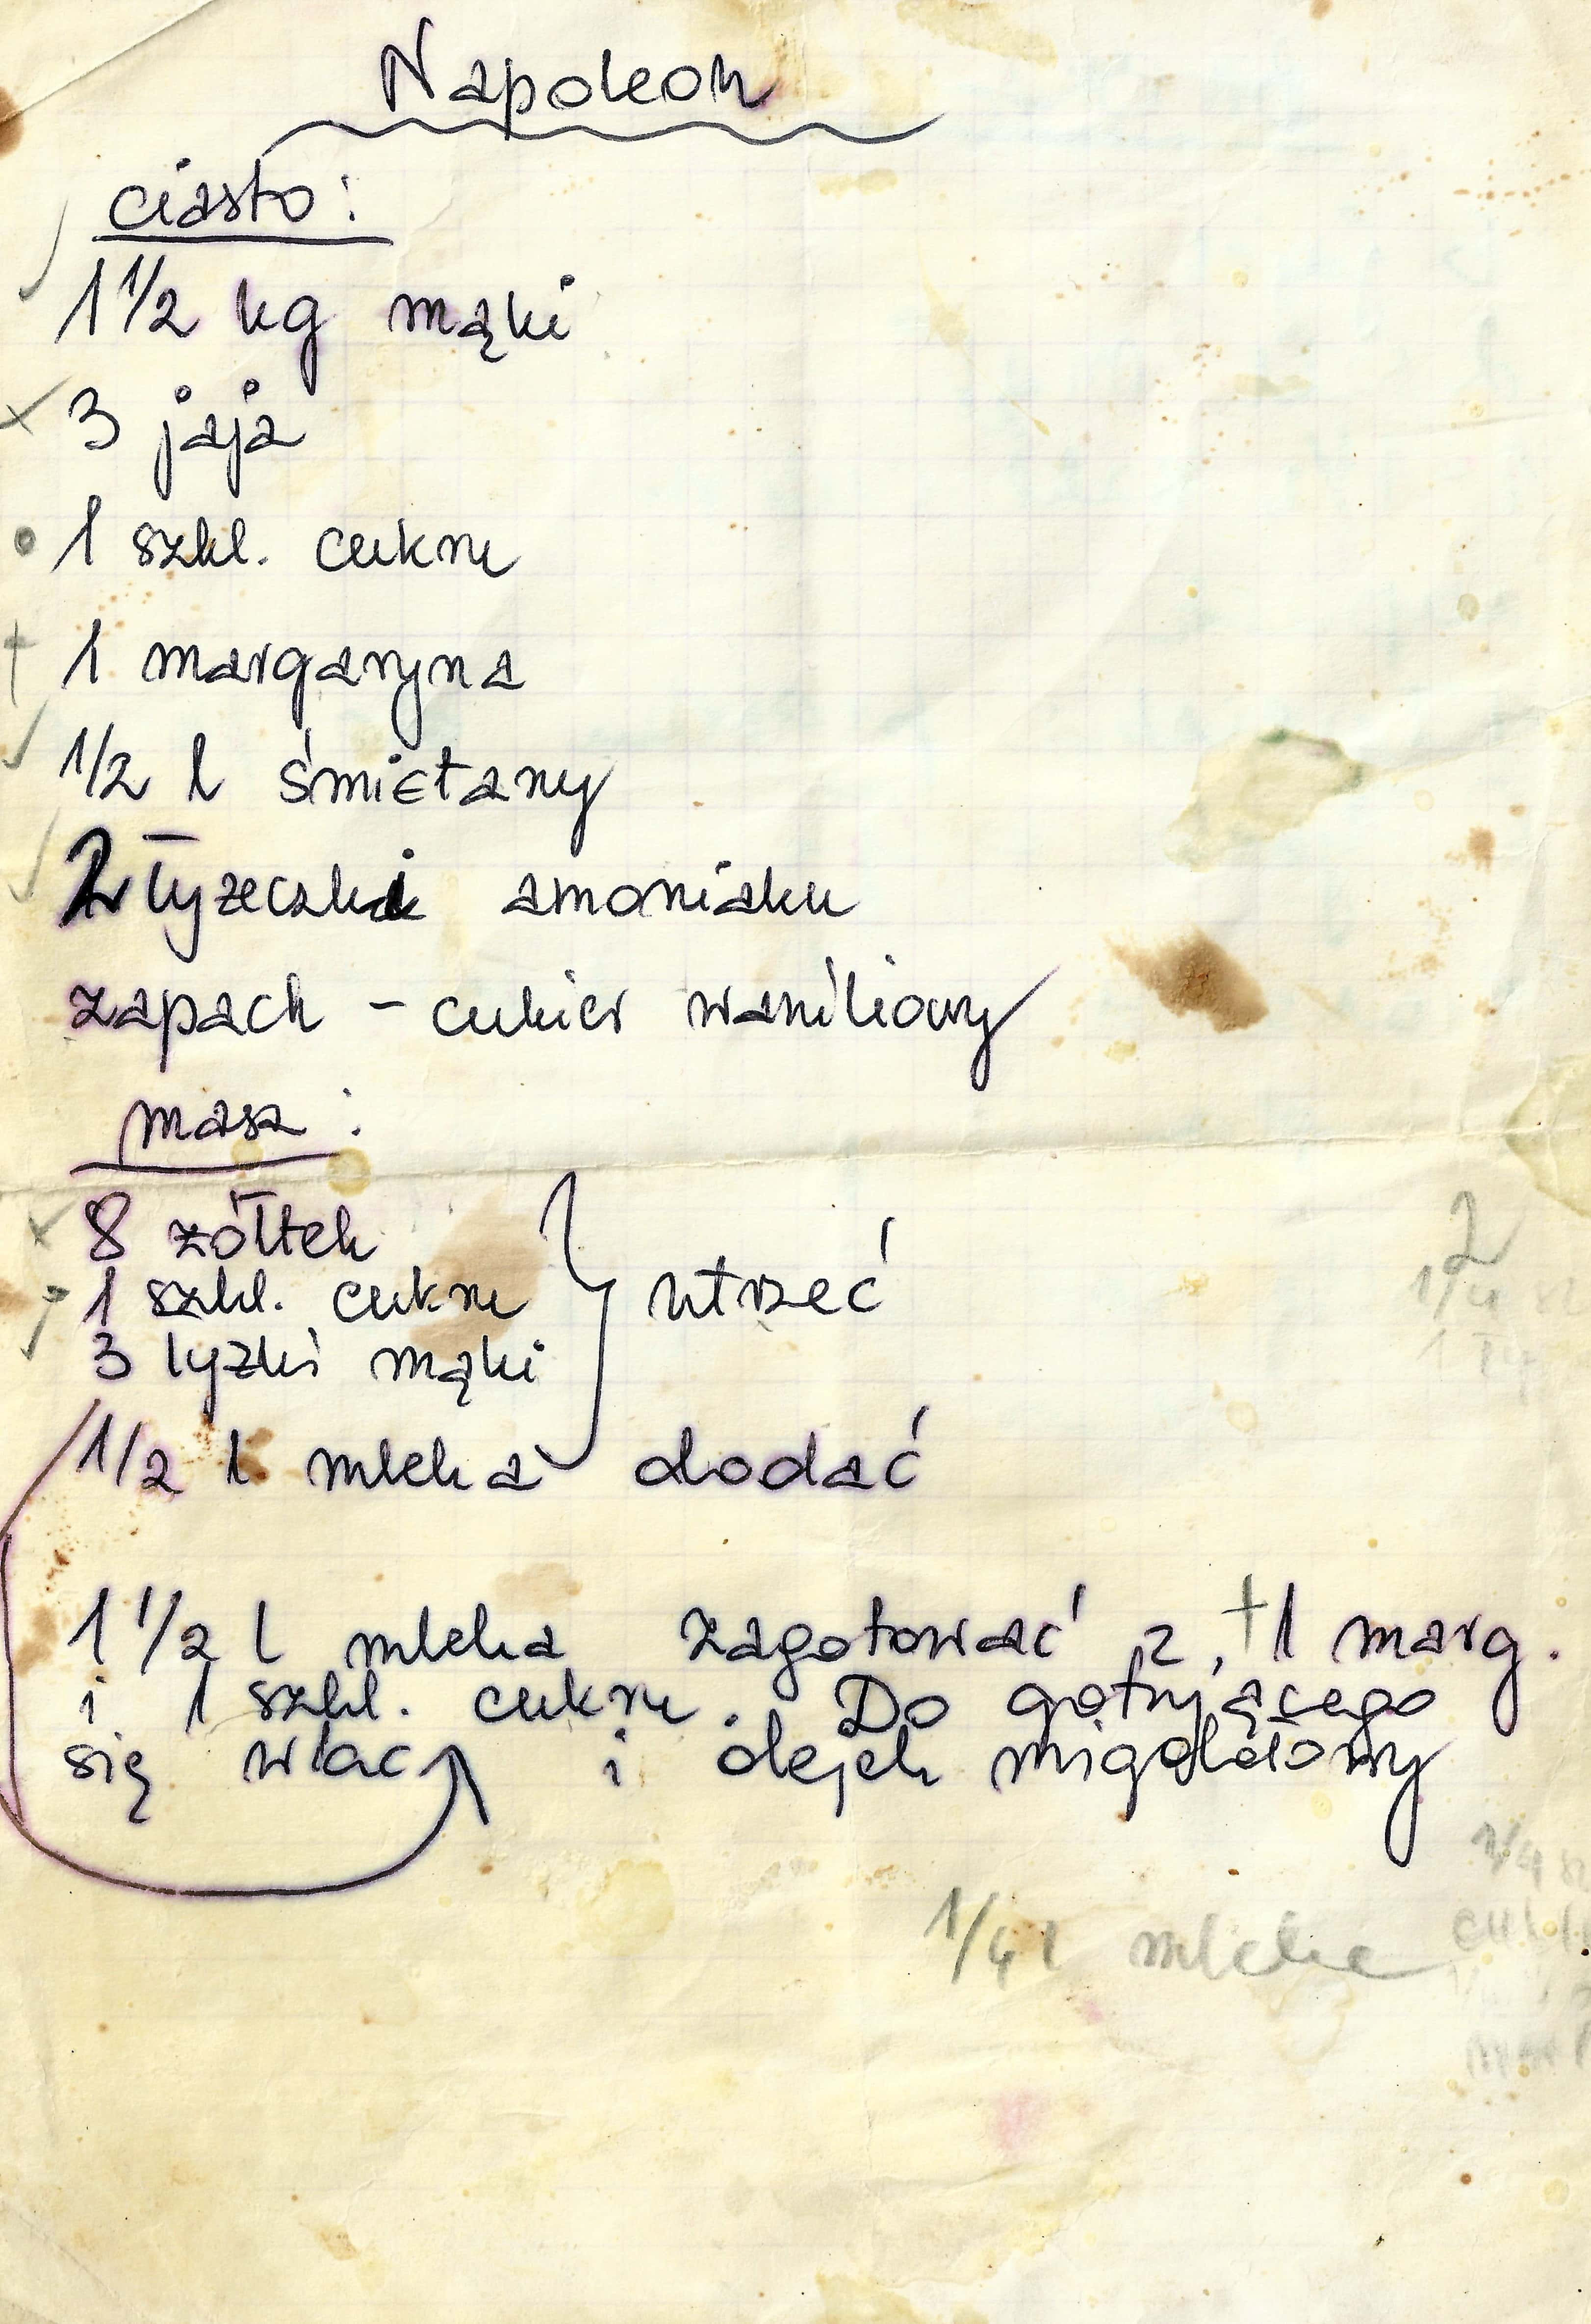 Napoleon
ciasto:
1 1/2 kg mąki
3 jaja
1 szkl. cukru
1 margaryna
1/2 l śmietany
2 łyżeczki amoniaku
zapach - cukier waniliowy
masa:
8 żółtek
1 szkl. cukru } utrzeć
3 łyżki mąki
1/2 l mleka dodać
1 1/2 l mleka zagotować z 1 marg.
i 1 szkl. cukru. Do gotującego
się wlać i olejek migdałowy
2
1/4
1/4
1/4 l mleka